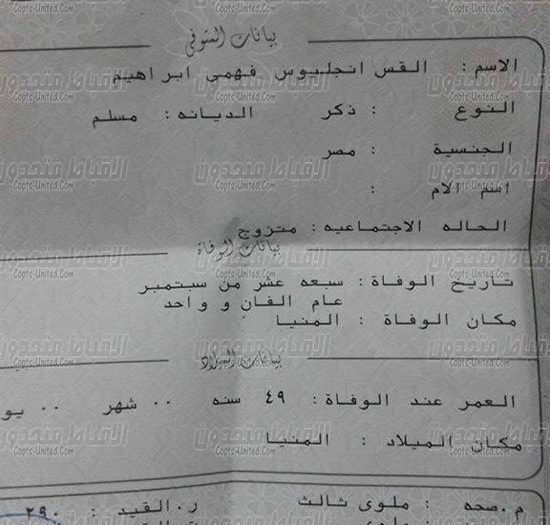 بيانات المتوفى
الاسم : القس انجليوس فهمى ابراهيم
النوع : ذكر الديانه : مسلم
الجنسية : مصر
اسم الام :
الحاله الاجتماعيه : متزوج
بيانات الوفاة
تاريخ الوفاة : سبعه عشر من سبتمبر
عام الفان و واحد
مكان الوفاة : المنيا
بيانات الميلاد
العمر عند الوفاة : ٤٩ سنه .. شهر .. يو
مكان الميلاد : المنيا
م.صحه : ملوى ثالث ر.القيد : ٢٩٠
الاقباط متحدون
Copts-United.Com